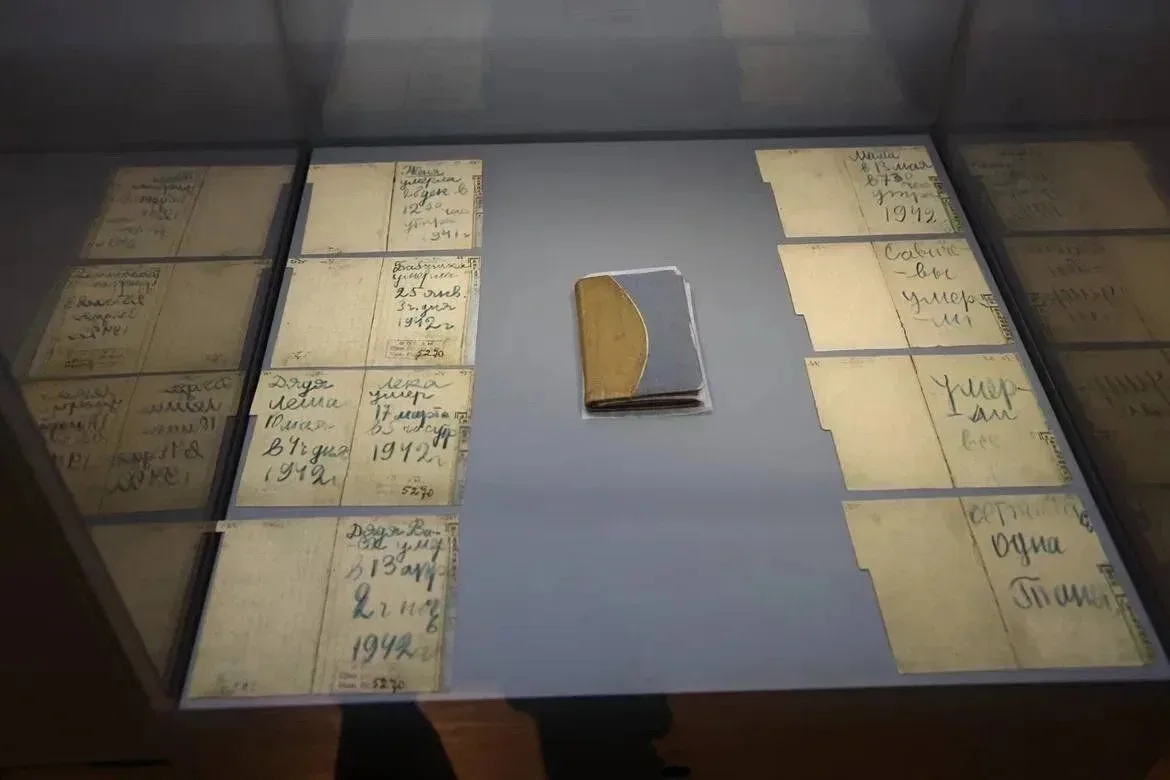 Женя
умерла
28 дек в
12 30 час
утра
1941 г
Бабушка
умерла
25 янв.
3 ч. дня
1942 г
5270
Дядя
Леша
10 мая
в 4 ч дня
1942 г
Лека
умер
17 марта
в 5 час утр
1942 г
5270
Дядя Ва-
ся умер
в 13 апр
2 ч ноч
1942 г
5270
Мама
в 13 мая
в 7 30 час
утра
1942
Савиче-
-вы
умер-
-ли
Умер-
ли
все
Осталась
одна
Таня